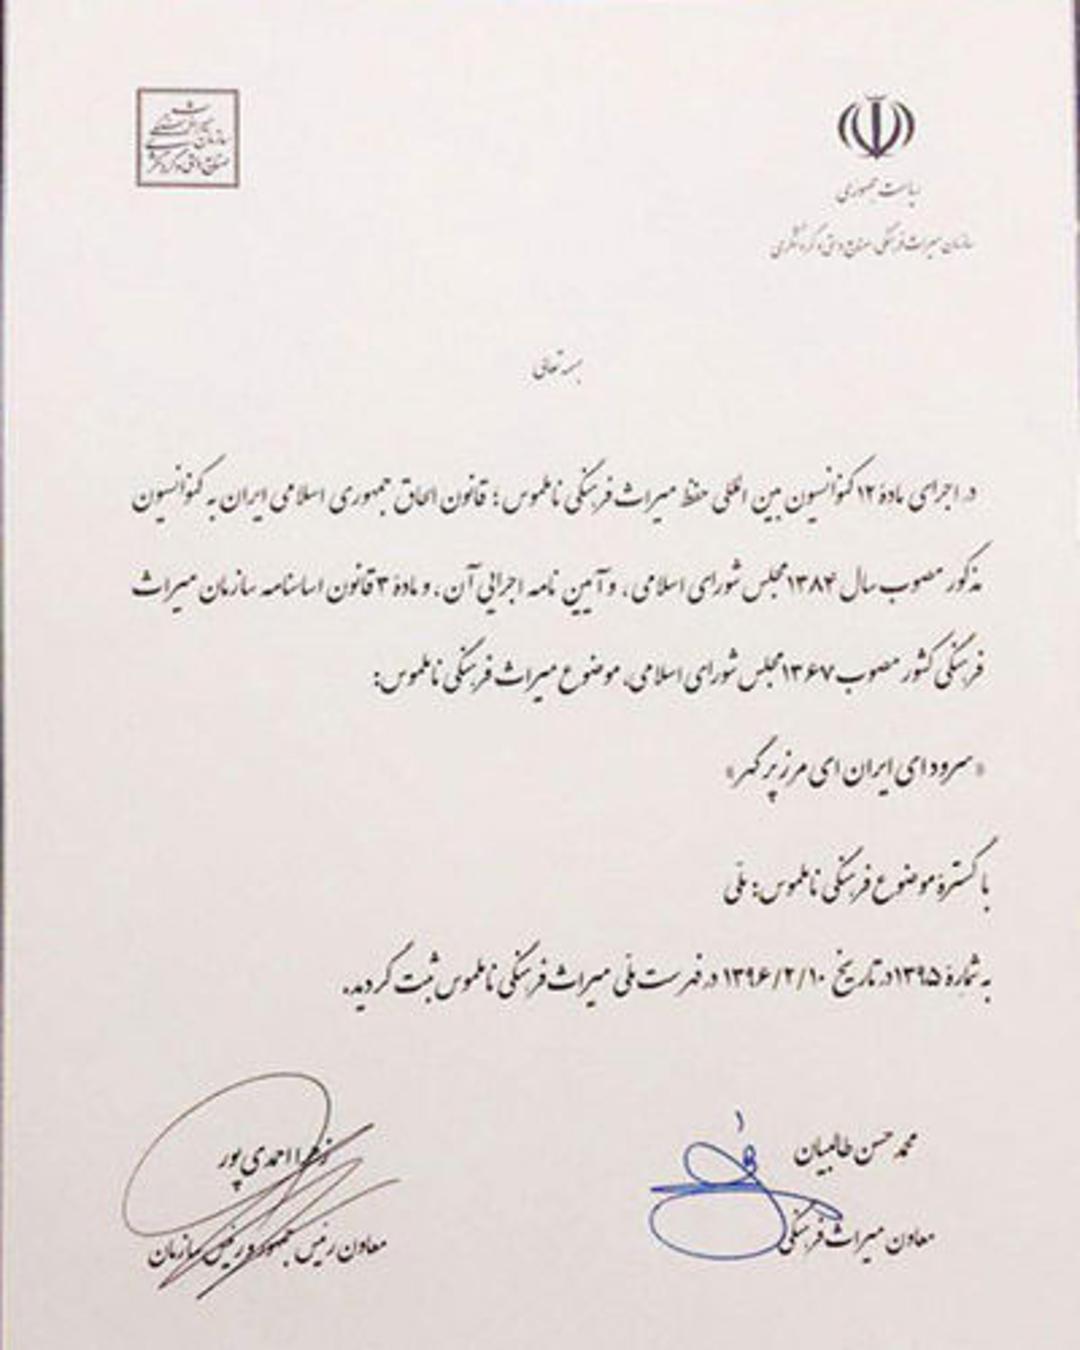 سازمان میراث فرهنگی
صنایع دستی و گردشگری
ریاست جمهوری
سازمان میراث فرهنگی، صنایع دستی و گردشگری
بسمه تعالی
در اجرای مادهٔ ۱۲ کنوانسیون بین المللی حفظ میراث فرهنگی ناملموس؛ قانون الحاق جمهوری اسلامی ایران به کنوانسیون
مذکور مصوب سال ۱۳۸۴ مجلس شورای اسلامی، و آیین نامه اجرایی آن، و مادهٔ ۳ قانون اساسنامه سازمان میراث
فرهنگی کشور مصوب ۱۳۶۷ مجلس شورای اسلامی، موضوع میراث فرهنگی ناملموس:
«سرود ای ایران ای مرز پر گهر»
با گسترهٔ موضوع فرهنگی ناملموس: ملّی
به شمارهٔ ۱۳۹۵ در تاریخ ۱۳۹۶/۲/۱۰ در فهرست ملّی میراث فرهنگی ناملموس ثبت گردید.
محمد حسن طالبیان
معاون میراث فرهنگی
زهرا احمدی پور
معاون رئیس جمهور و رئیس سازمان